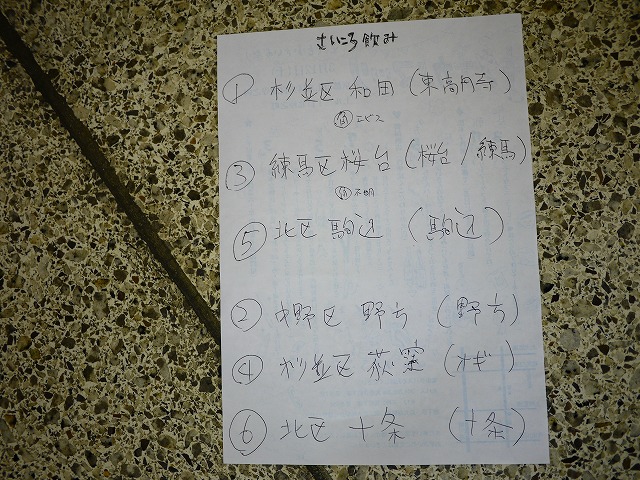 さいころ飲み
① 杉並区 和田 (東高円寺)
エビス
③ 練馬区 桜台 (桜台/練馬)
不明
⑤ 北区 駒込 (駒込)
② 中野区 野方 (野方)
④ 杉並区 荻窪 (オギ)
⑥ 北区 十条 (十条)